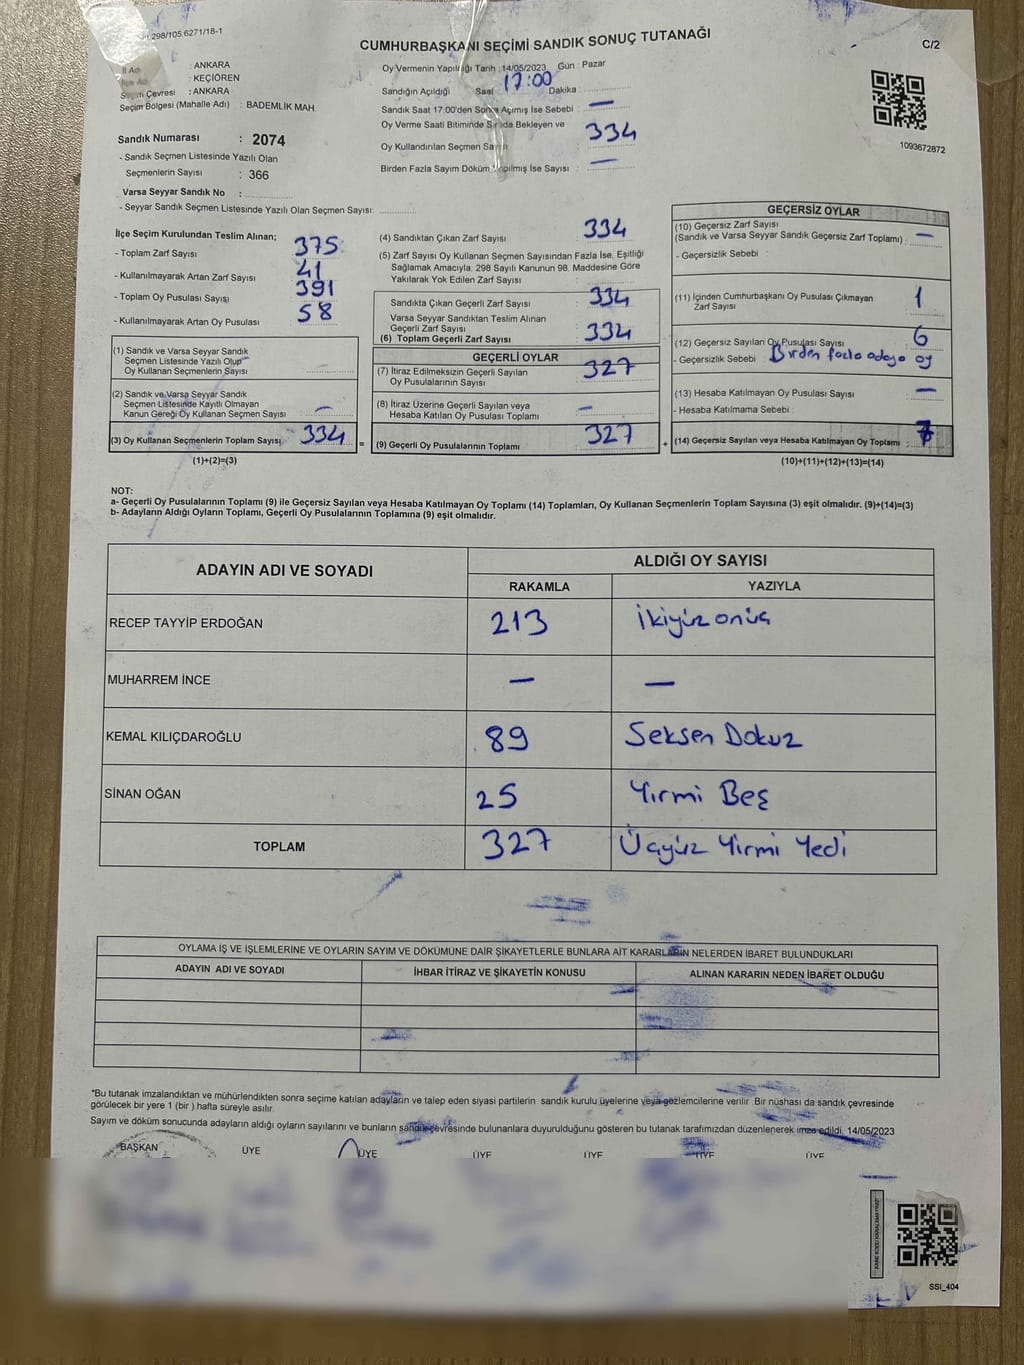 298/105.6271/18-1
CUMHURBAŞKANI SEÇİMİ SANDIK SONUÇ TUTANAĞI
C/2
İl Adı : ANKARA
İlçe Adı : KEÇİÖREN
Seçim Çevresi : ANKARA
Seçim Bölgesi (Mahalle Adı) : BADEMLİK MAH.
Oy Vermenin Yapıldığı Tarih :14/05/2023 Gün : Pazar
Sandığın Açıldığı Saat 17:00 Dakika
Sandık Saat 17:00'den Sonra Açılmış İse Sebebi : —
Oy Verme Saati Bitiminde Sırada Bekleyen ve
Oy Kullandırılan Seçmen Sayısı : 334
Birden Fazla Sayım Döküm Yapılmış İse Sayısı : —
1093672872
Sandık Numarası : 2074
- Sandık Seçmen Listesinde Yazılı Olan
Seçmenlerin Sayısı : 366
Varsa Seyyar Sandık No :
- Seyyar Sandık Seçmen Listesinde Yazılı Olan Seçmen Sayısı:
İlçe Seçim Kurulundan Teslim Alınan;
- Toplam Zarf Sayısı : 375
- Kullanılmayarak Artan Zarf Sayısı : 41
- Toplam Oy Pusulası Sayısı : 391
- Kullanılmayarak Artan Oy Pusulası : 58
(1) Sandık ve Varsa Seyyar Sandık
Seçmen Listesinde Yazılı Olup
Oy Kullanan Seçmenlerin Sayısı :
(2) Sandık ve Varsa Seyyar Sandık
Seçmen Listesinde Kayıtlı Olmayan
Kanun Gereği Oy Kullanan Seçmen Sayısı : —
(3) Oy Kullanan Seçmenlerin Toplam Sayısı : 334
(1)+(2)=(3)
(4) Sandıktan Çıkan Zarf Sayısı : 334
(5) Zarf Sayısı Oy Kullanan Seçmen Sayısından Fazla İse, Eşitliği
Sağlamak Amacıyla, 298 Sayılı Kanunun 98. Maddesine Göre
Yakılarak Yok Edilen Zarf Sayısı :
Sandıkta Çıkan Geçerli Zarf Sayısı : 334
Varsa Seyyar Sandıktan Teslim Alınan
Geçerli Zarf Sayısı
(6) Toplam Geçerli Zarf Sayısı : 334
GEÇERLİ OYLAR
(7) İtiraz Edilmeksizin Geçerli Sayılan
Oy Pusulalarının Sayısı : 327
(8) İtiraz Üzerine Geçerli Sayılan veya
Hesaba Katılan Oy Pusulası Toplamı : —
= (9) Geçerli Oy Pusulalarının Toplamı : 327 +
GEÇERSİZ OYLAR
(10) Geçersiz Zarf Sayısı
(Sandık ve Varsa Seyyar Sandık Geçersiz Zarf Toplamı) : —
- Geçersizlik Sebebi :
(11) İçinden Cumhurbaşkanı Oy Pusulası Çıkmayan
Zarf Sayısı : 1
(12) Geçersiz Sayılan Oy Pusulası Sayısı : 6
- Geçersizlik Sebebi : Birden fazla adaya oy
(13) Hesaba Katılmayan Oy Pusulası Sayısı : —
- Hesaba Katılmama Sebebi :
(14) Geçersiz Sayılan veya Hesaba Katılmayan Oy Toplamı : 7
(10)+(11)+(12)+(13)=(14)
NOT:
a- Geçerli Oy Pusulalarının Toplamı (9) ile Geçersiz Sayılan veya Hesaba Katılmayan Oy Toplamı (14) Toplamları, Oy Kullanan Seçmenlerin Toplam Sayısına (3) eşit olmalıdır. (9)+(14)=(3)
b- Adayların Aldığı Oyların Toplamı, Geçerli Oy Pusulalarının Toplamına (9) eşit olmalıdır.
ADAYIN ADI VE SOYADI
ALDIĞI OY SAYISI
RAKAMLA YAZIYLA
RECEP TAYYİP ERDOĞAN 213 İkiyüz onüç
MUHARREM İNCE — —
KEMAL KILIÇDAROĞLU 89 Seksen Dokuz
SİNAN OĞAN 25 Yirmi Beş
TOPLAM 327 Üçyüz Yirmi Yedi
OYLAMA İŞ VE İŞLEMLERİNE VE OYLARIN SAYIM VE DÖKÜMÜNE DAİR ŞİKAYETLERLE BUNLARA AİT KARARLARIN NELERDEN İBARET BULUNDUKLARI
ADAYIN ADI VE SOYADI İHBAR İTİRAZ VE ŞİKAYETİN KONUSU ALINAN KARARIN NEDEN İBARET OLDUĞU
*Bu tutanak imzalandıktan ve mühürlendikten sonra seçime katılan adayların ve talep eden siyasi partilerin sandık kurulu üyelerine veya gözlemcilerine verilir. Bir nüshası da sandık çevresinde
görülecek bir yere 1 (bir) hafta süreyle asılır.
Sayım ve döküm sonucunda adayların aldığı oyların sayılarını ve bunların sandık çevresinde bulunanlara duyurulduğunu gösteren bu tutanak tarafımızdan düzenlenerek imza edildi. 14/05/2023
BAŞKAN ÜYE ÜYE ÜYE ÜYE ÜYE ÜYE
SSI_404